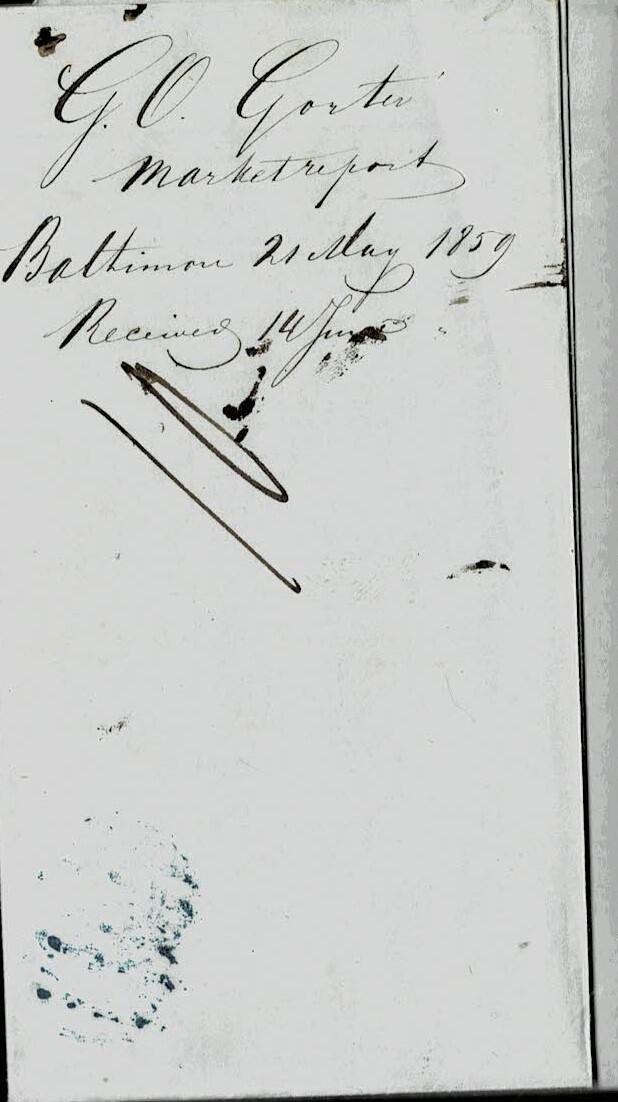 G. O. Gorter
Market report
Baltimore 21 May 1859
Received 14 June "